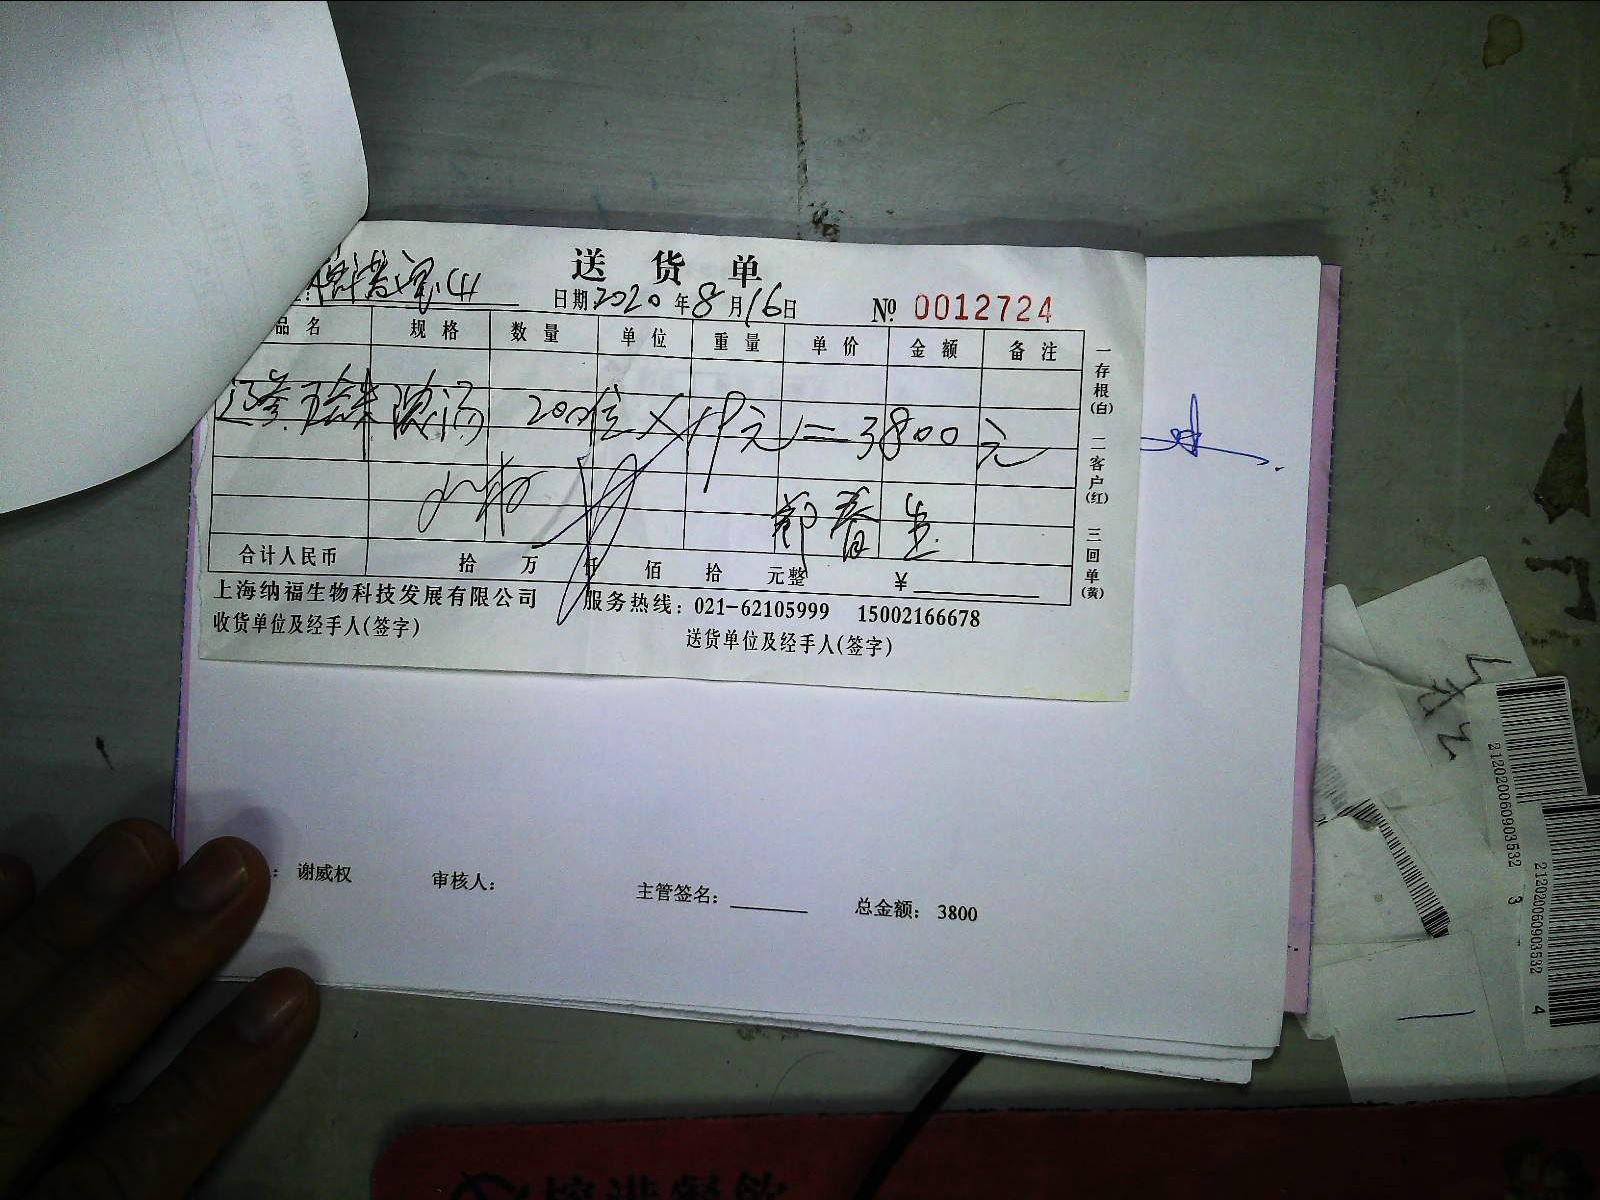 送货单
日期2020年8月16日 № 0012724
品名 规格 数量 单位 重量 单价 金额 备注
辽参 浓汤 200位×19元=3800元
郑春生
合计人民币 拾 万 仟 佰 拾 元整 ¥
上海纳福生物科技发展有限公司 服务热线：021-62105999 15002166678
收货单位及经手人(签字) 送货单位及经手人(签字)
一存根(白) 二客户(红) 三回单(黄)
：谢威权 审核人： 主管签名： 总金额： 3800
2120200609035323
2120200609035324